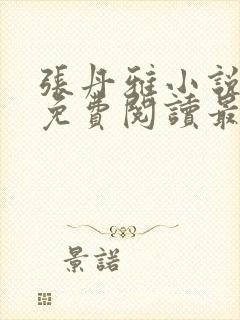 張丹雅小說
免費閱讀最
景諾